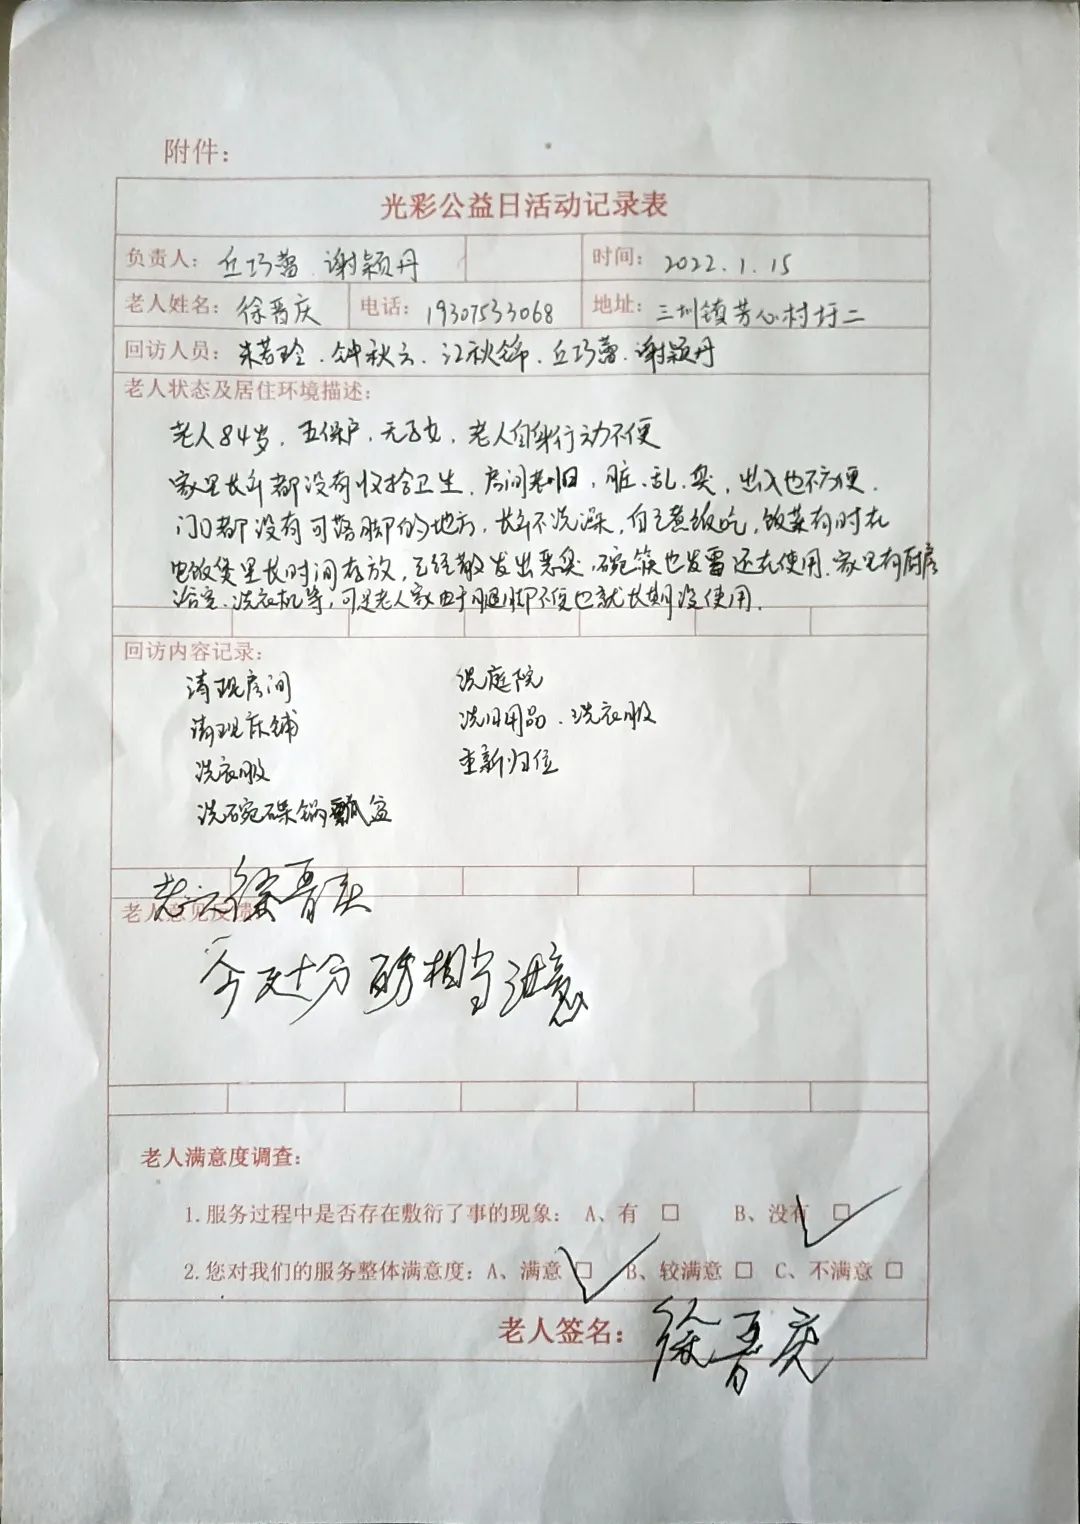 附件：
光彩公益日活动记录表
负责人： 丘巧蕾 谢颖丹 时间： 2022.1.15
老人姓名： 徐晋庆 电话： 19307533068 地址： 三圳镇芳心村圩二
回访人员： 朱若玲、钟秋云、江秋锦、丘巧蕾、谢颖丹
老人状态及居住环境描述：
老人84岁，五保户，无子女，老人自身行动不便
家里长年都没有收拾卫生，房间老旧，脏、乱、臭，出入也不方便，
门口都没有可踏脚的地方，长年不洗澡，自己煮饭吃，饭菜有时在
电饭煲里长时间存放，已经散发出恶臭，碗筷也发霉还在使用，家里有厨房
浴室、洗衣机等，可是老人家由于腿脚不便也就长期没使用。
回访内容记录：
清理房间 洗庭院
清理床铺 洗旧用品、洗衣服
洗衣服 重新归位
洗碗碟锅瓢盆
老人意见反馈
徐晋庆
今天十分 相当满意
老人满意度调查：
1.服务过程中是否存在敷衍了事的现象： A、有 □ B、没有 □
2.您对我们的服务整体满意度：A、满意 □ B、较满意 □ C、不满意 □
老人签名： 徐晋庆